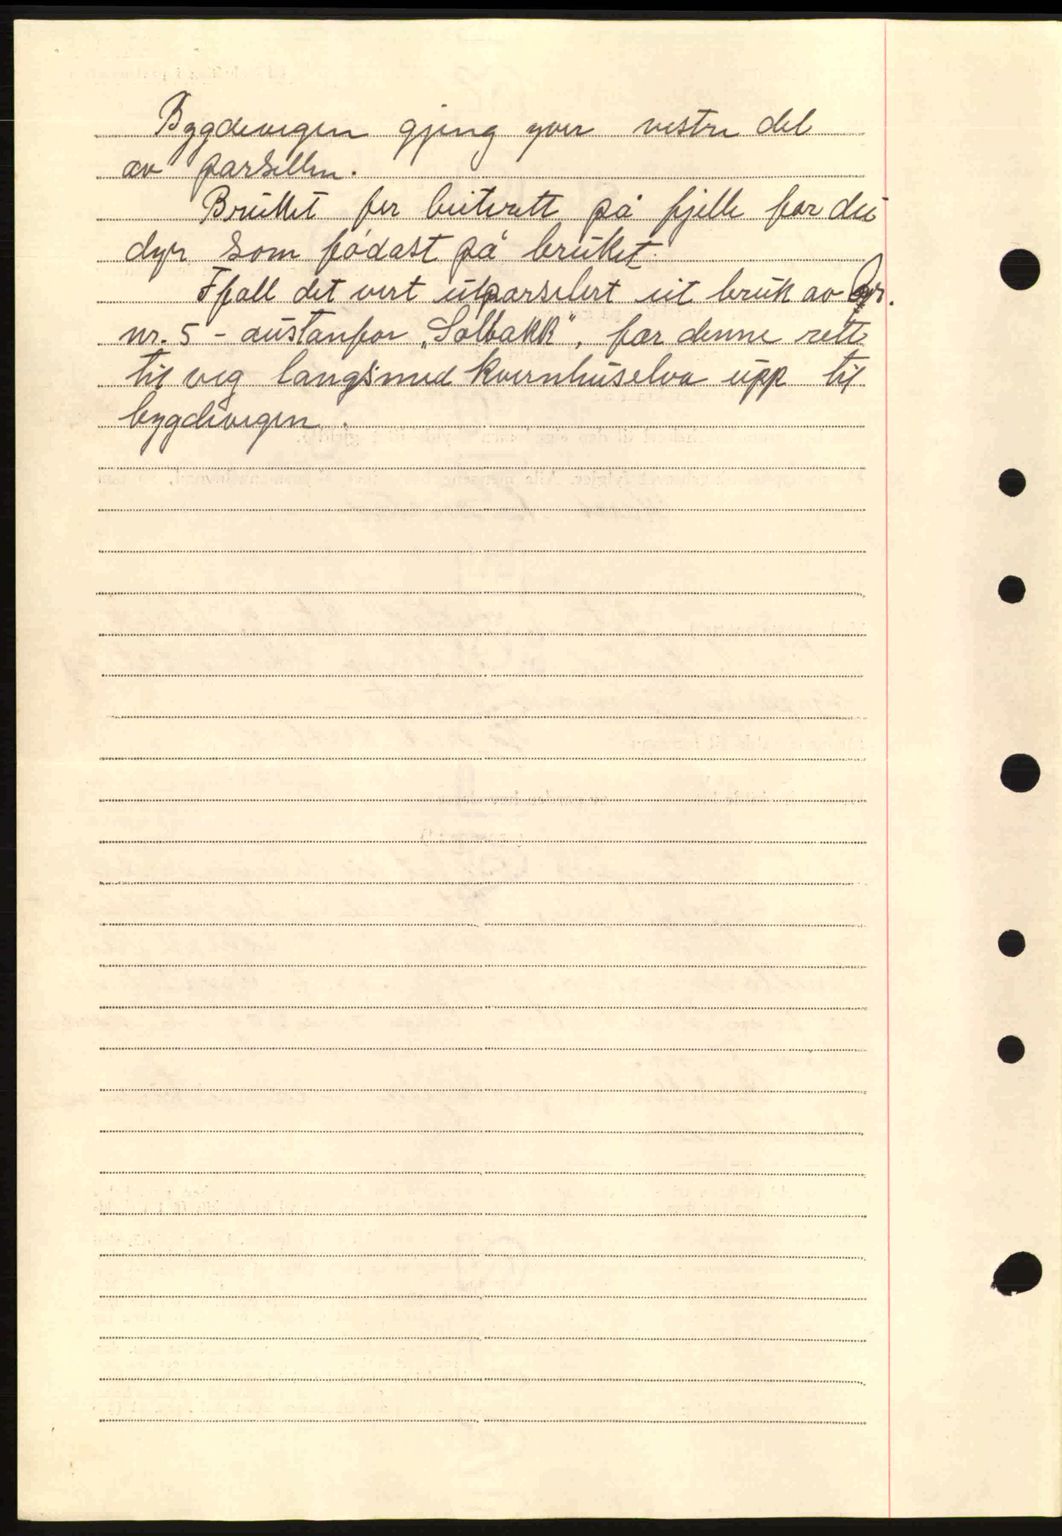 Bygdevegen gjeng yver vestre del
av parsellen.
Bruket fer beiterett på fjelle for dei
dyr som fødast på bruket.
I fall det vert utparselert eit bruk av br.
nr. 5 - austanfor „Solbakk", fær denne rett
til veg langs med kvernhuselva upp til
bygdivegen.